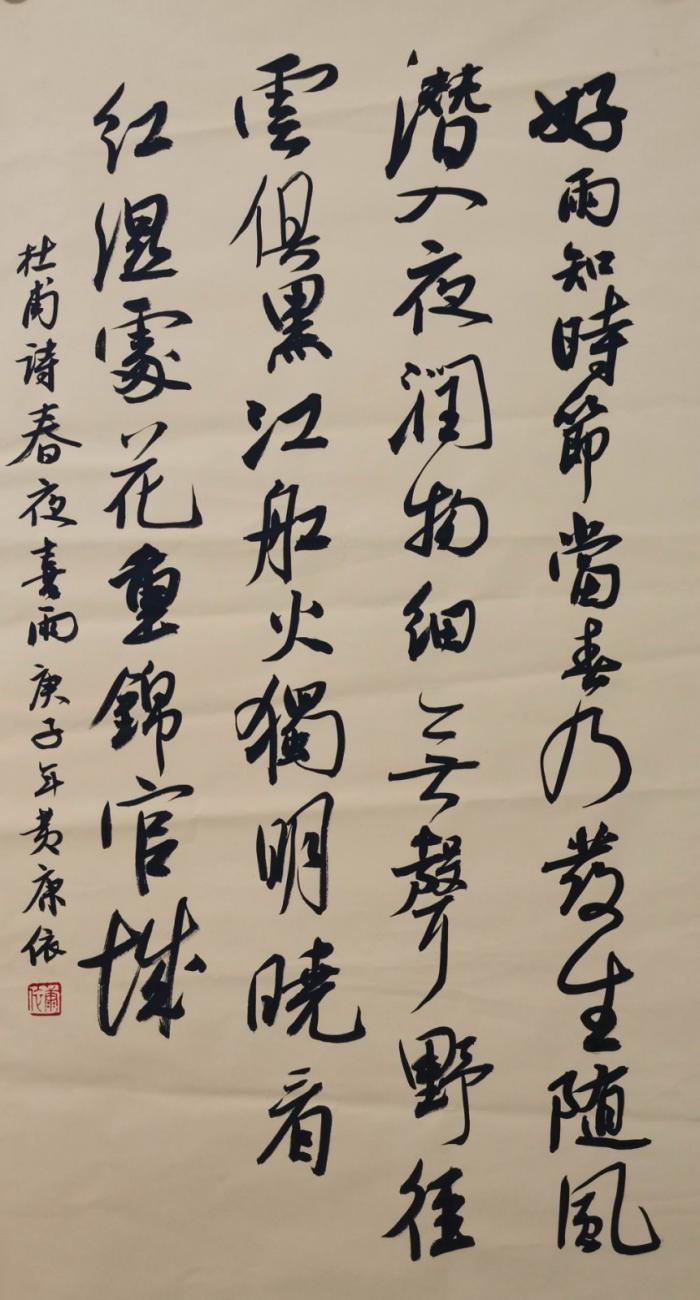 好雨知時節當春乃發生随風
潛入夜潤物細無聲野徑
雲俱黑江船火獨明曉看
紅濕處花重錦官城
杜甫詩春夜喜雨庚子年黄康依